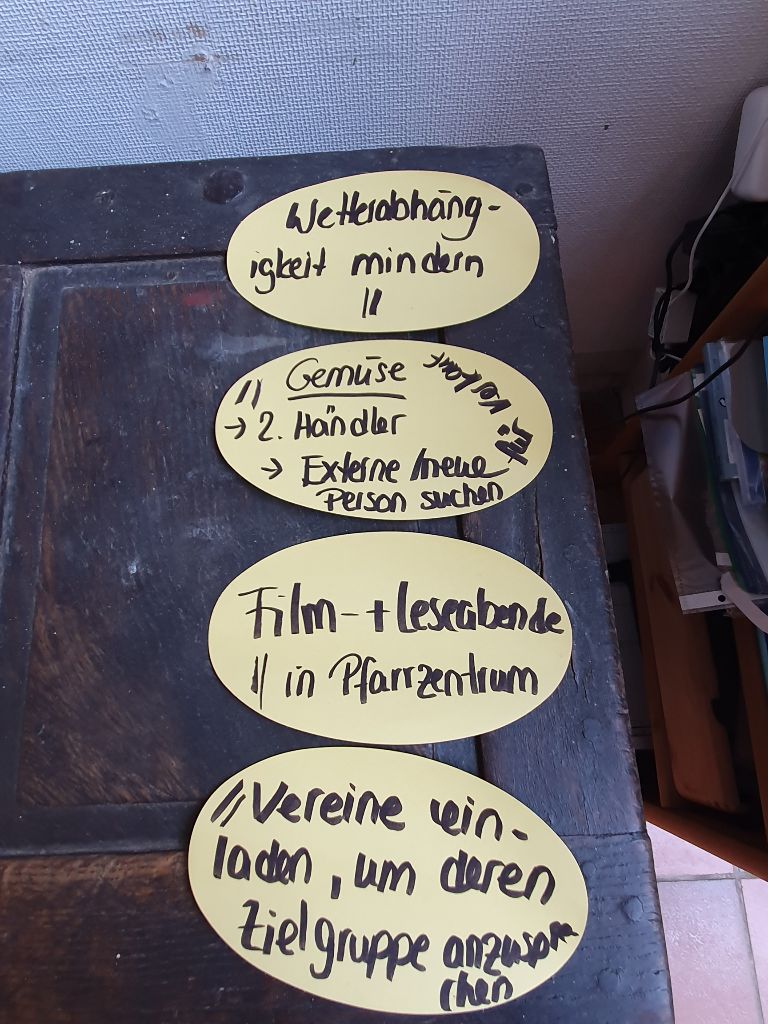 Wetterabhäng-
igkeit mindern
||
|| Gemüse
→ 2. Händler
→ Externe/neue
Person suchen
für Verkauf
Film- + Leseabende
|| in Pfarrzentrum
|| Vereine ein-
laden, um deren
Zielgruppe anzuspre
chen